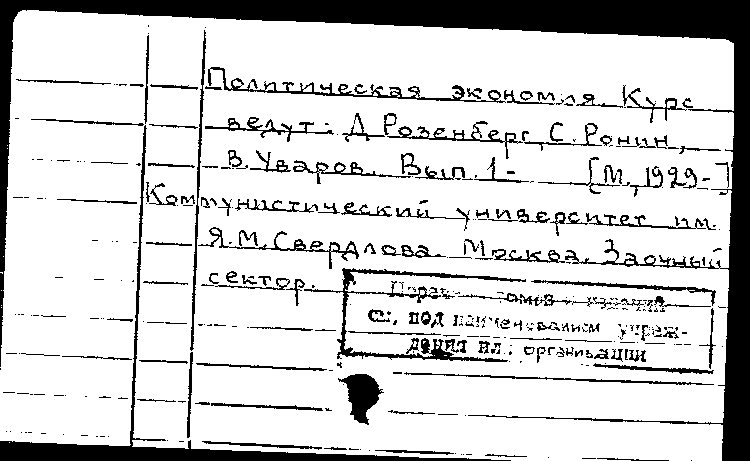 Политическая экономия. Курс
ведут: Д. Розенберг, С. Ронин,
В. Уваров. Вып. 1- [М., 1929-]
Коммунистический университет им.
Я.М. Свердлова. Москва. Заочный
сектор.
томов и изданий
см. под наименованием учреж-
дения или организации